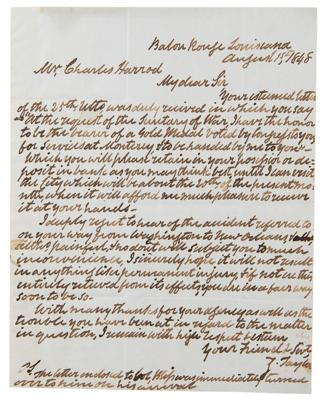 Baton Rouge Louisiana
August 1st 1848
Mr Charles Harrod
My dear Sir
Your esteemed letter
of the 25th Ulto was duly recived in which you say
"At the request of the Secretary of War I have the honor
to be the bearer of a Gold Medal voted by Congress to you
for Services at Monterey & to be handed by me to you"
Which you will please retain in your possession or de-
posit in bank as you may think best, until I can visit
the City which will be about the 20th of the present mo-
nth, when it will afford me much pleasure to receive
it at your hands
I deeply regret to hear of the accident referred to
on your way from to New Orleans
altho painful, no doubt will subject you to much
inconvenience, I sincerely hope it will not result
in anything like permanent injury & if not in the
entirety relieved from its effects, you are in a fair way
soon to be so-
With many thanks for your agency as well as the
trouble you have been at in regard to the matter
in question, I remain with high respect & esteem
Your Friend & Svt
Z. Taylor
The letter enclosed to Col. Bliss was immediately turned
over to him on his arrival